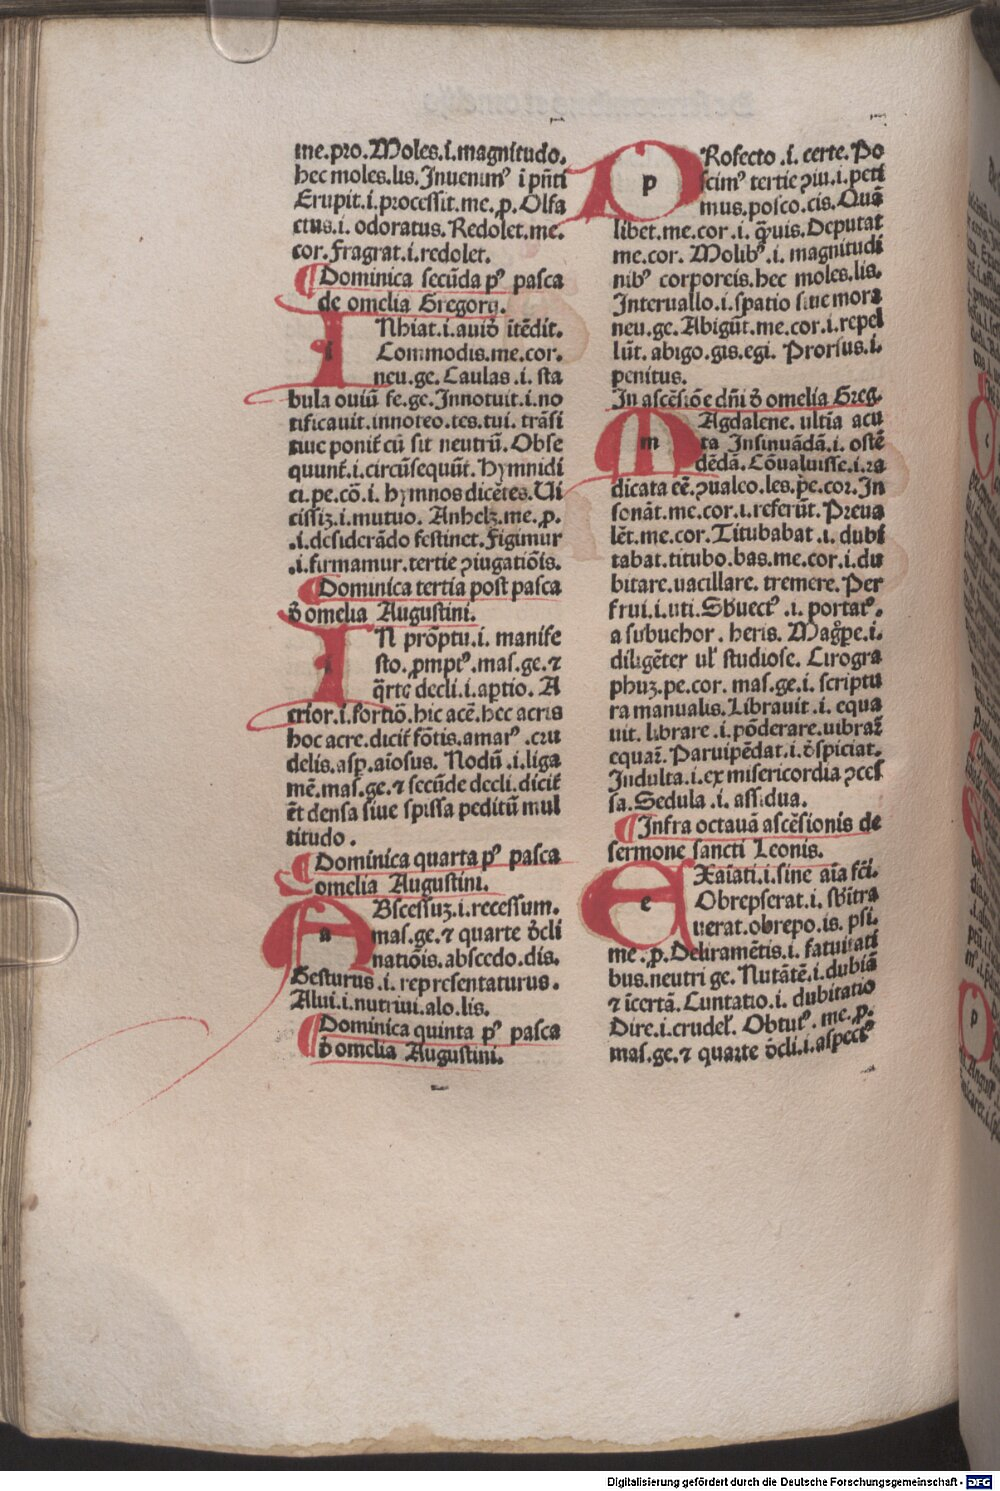 me.pro.Moles.i.magnitudo.
hec moles.lis. Inuenimꝰ ī pñti
Erupit.i.processit.me.ꝓ. Olfa
ctus.i. odoratus. Redolet.me.
cor. Fragrat.i.redolet.
¶ Dominica secūda pꝰ pasca
de omelia Gregorij.
INhiat.i.auid̄ ītēdit.
Commodis.me.cor.
neu.ge. Caulas.i. sta
bula ouiū fe.ge. Innotuit.i.no
tificauit.innoteo.tes.tui. trāsi
tiue ponit̄ cū sit neutrū. Obse
quunt̄.i.circūsequūt̄. hymnidi
ci.pe.cō.i. hymnos dicētes. Ui
cissiꝫ.i.mutuo. Anhelꝫ.me.ꝓ.
.i.desiderādo festinet. Figimur
.i.firmamur.tertie ꝯiugatiōis.
¶ Dominica tertia post pasca
d̄ omelia Augustini.
IN prōptu.i. manife
sto. ꝓmptꝰ.mas.ge.⁊
q̄rte decli.i.aptio. A
crior.i.fortiō.hic acē.hec acris
hoc acre.dicit̄ fōtis.amarꝰ.cru
delis.asꝑ.aīosus. Nodū.i.liga
mē.mas.ge.⁊ secūde decli.dicit̄
ēt densa siue spissa peditū mul
titudo.
¶ Dominica quarta pꝰ pasca
omelia Augustini.
ABscessuꝫ.i.recessum.
mas.ge.⁊ quarte d̄cli
natiōis.abscedo.dis.
Gesturus.i.representaturus.
Alui.i.nutriui.alo.lis.
¶ Dominica quinta pꝰ pasca
d̄ omelia Augustini.
PRofecto.i. certe. Po
scimꝰ tertie ꝯiu.i.peti
mus.posco.cis. Quā
libet.me.cor.i. q̄uis. Deputat
me.cor. Molibꝰ.i. magnitudi
nibꝰ corporeis.hec moles.lis.
Interuallo.i.spatio siue mora
neu.ge. Abigūt.me.cor.i.repel
lūt. abigo.gis.egi. Prorsus.i.
penitus.
In ascēsiōe dñi d̄ omelia Greg.
MAgdalene. ultīa acu
ta Insinuādā.i. ostē
dēdā. Cōualuisse.i.ra
dicata eē.ꝯualco.les.pe.cor. In
sonāt.me.cor.i.referūt. Preua
lēt.me.cor. Titubabat.i. dubi
tabat.titubo.bas.me.cor.i.du
bitare.uacillare. tremere. Per
frui.i.uti. Sb̄uectꝰ.i. portatꝰ.
a subuehor. heris. Magꝑe.i.
diligēter ul̄ studiose. Cirogra
phuꝫ.pe.cor. mas.ge.i. scriptu
ra manualis. Librauit.i. equa
uit. librare.i.pōderare.uibrar̄
equar̄. Paruipēdat.i. d̄spiciat.
Indulta.i.ex misericordia ꝯces
sa. Sedula.i. assidua.
¶ Infra octauā ascēsionis de
sermone sancti Leonis.
EXaīati.i.sine aīa fc̄i.
Obrepserat.i. sb̄ītra
uerat.obrepo.is. psi.
me.ꝓ. Deliramētis.i. fatuitati
bus.neutri ge. Nutātē.i.dubiā
⁊ īcertā. Cuntatio.i. dubitatio
Dire.i.crudel̄. Obtutꝰ. me.ꝓ.
mas.ge.⁊ quarte d̄cli.i.aspectꝰ
Digitalisierung gefördert durch die Deutsche Forschungsgemeinschaft - DFG